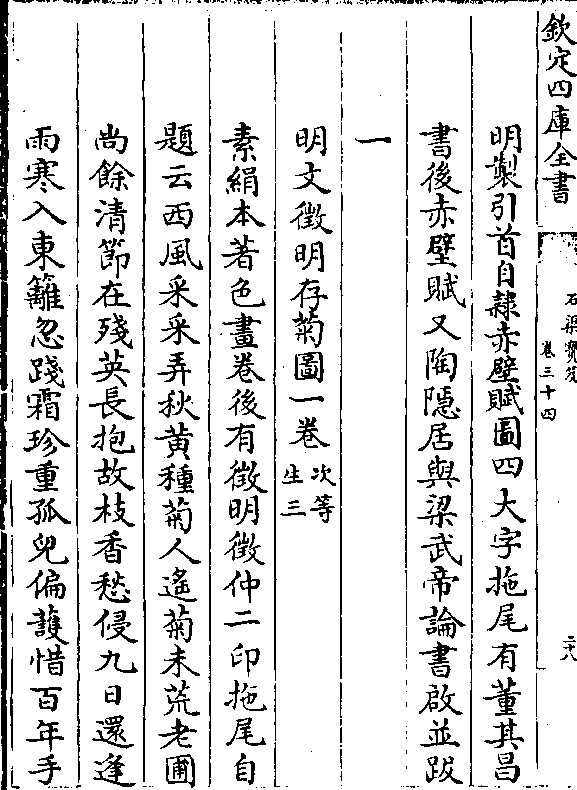 欽定四庫全書
石渠寶笈
卷三十四
二十八
明製引首自隷赤壁賦圖四大字拖尾有董其昌
書後赤壁賦又陶隱居與梁武帝論書啟並跋
一
明文徵明存菊圖一卷次等
生三
素絹本著色畫卷後有徵明徵仲二印拖尾自
題云西風采采弄秋黄種菊人遙菊未荒老圃
尚餘清節在殘英長抱故枝香愁侵九日還逢
雨寒入東籬忽踐霜珍重孤兒偏護惜百年手